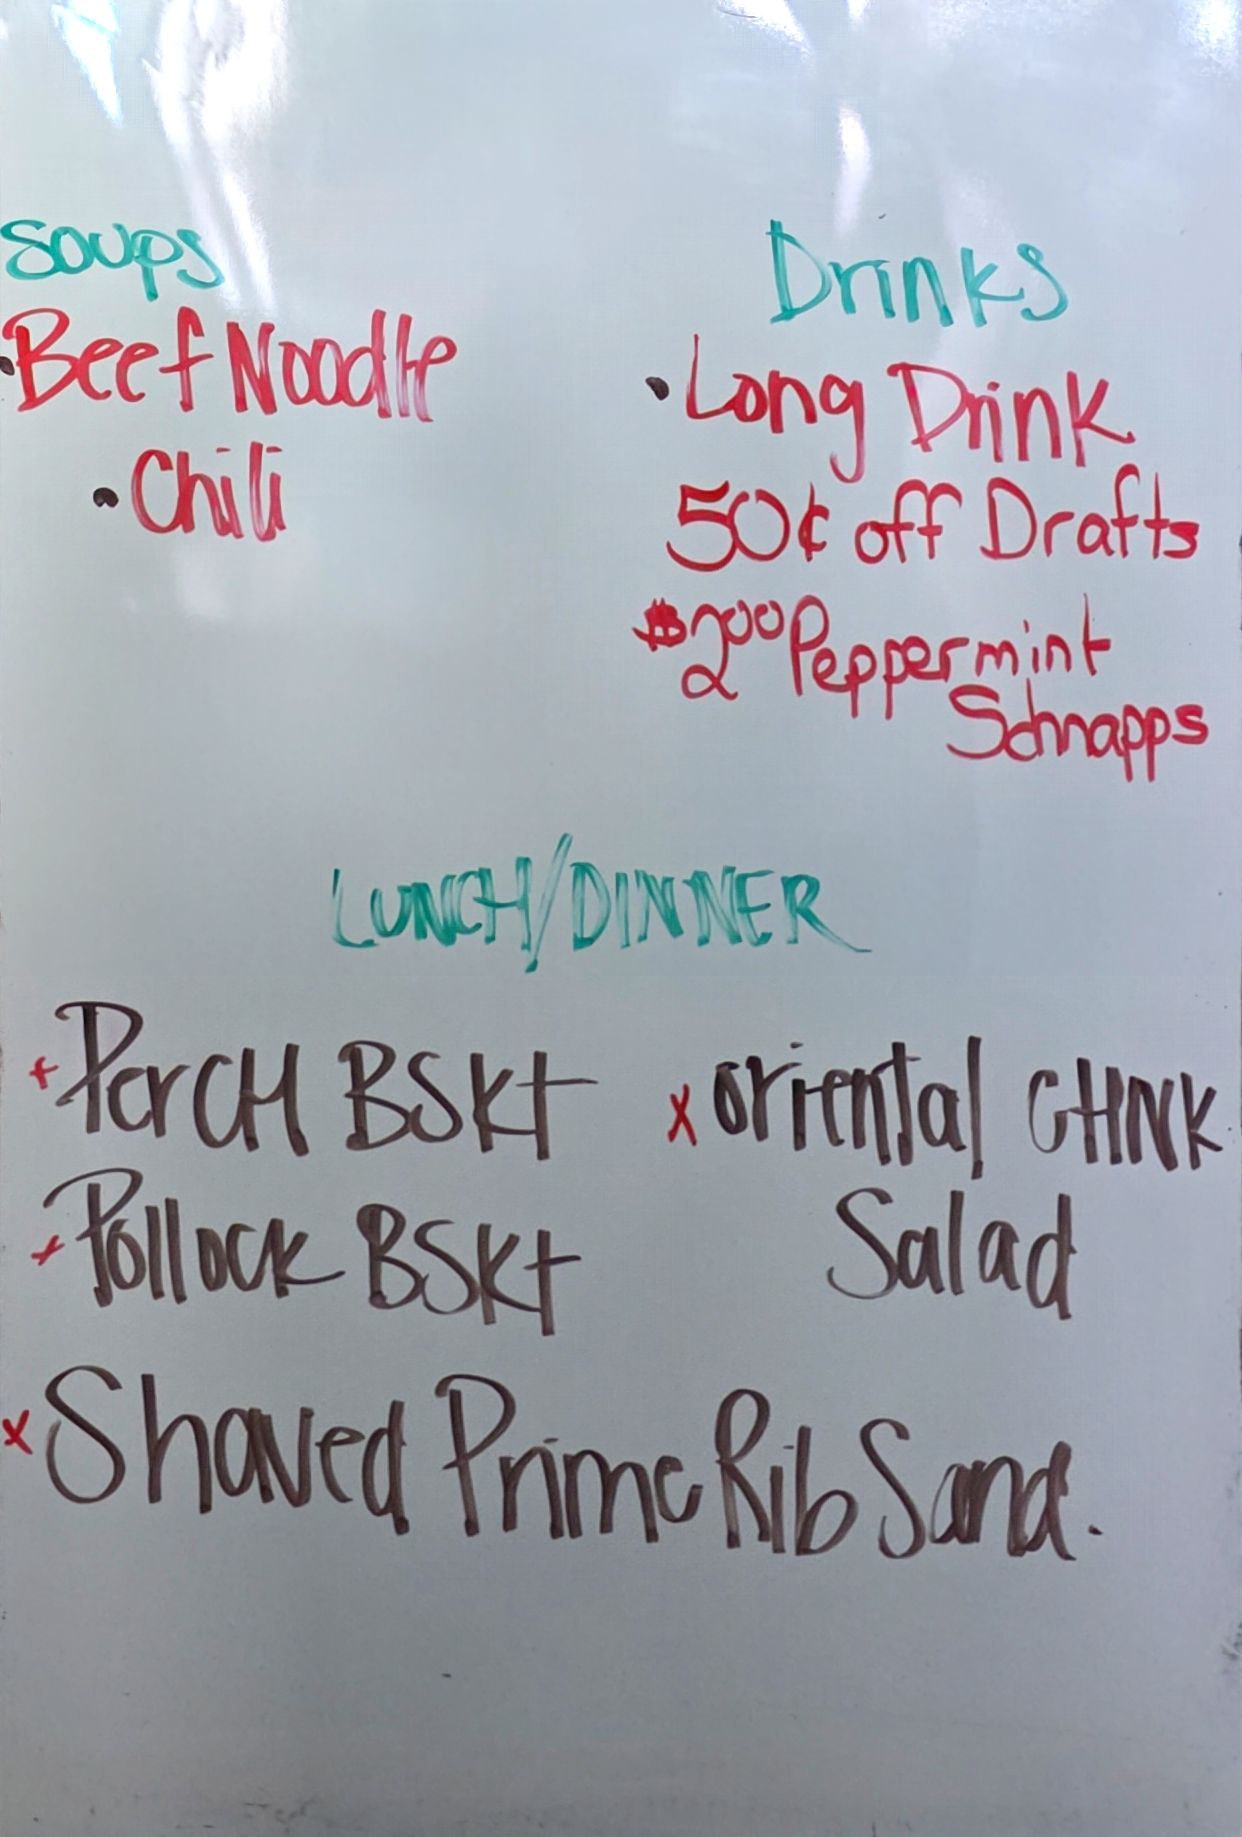 Soups
• Beef Noodle
• Chili
Drinks
• Long Drink
50¢ off Drafts
$200 Peppermint
Schnapps
LUNCH/DINNER
x Perch BSKt
x Pollock BSKt
x oriental CHNK
Salad
x Shaved Prime Rib Sand.